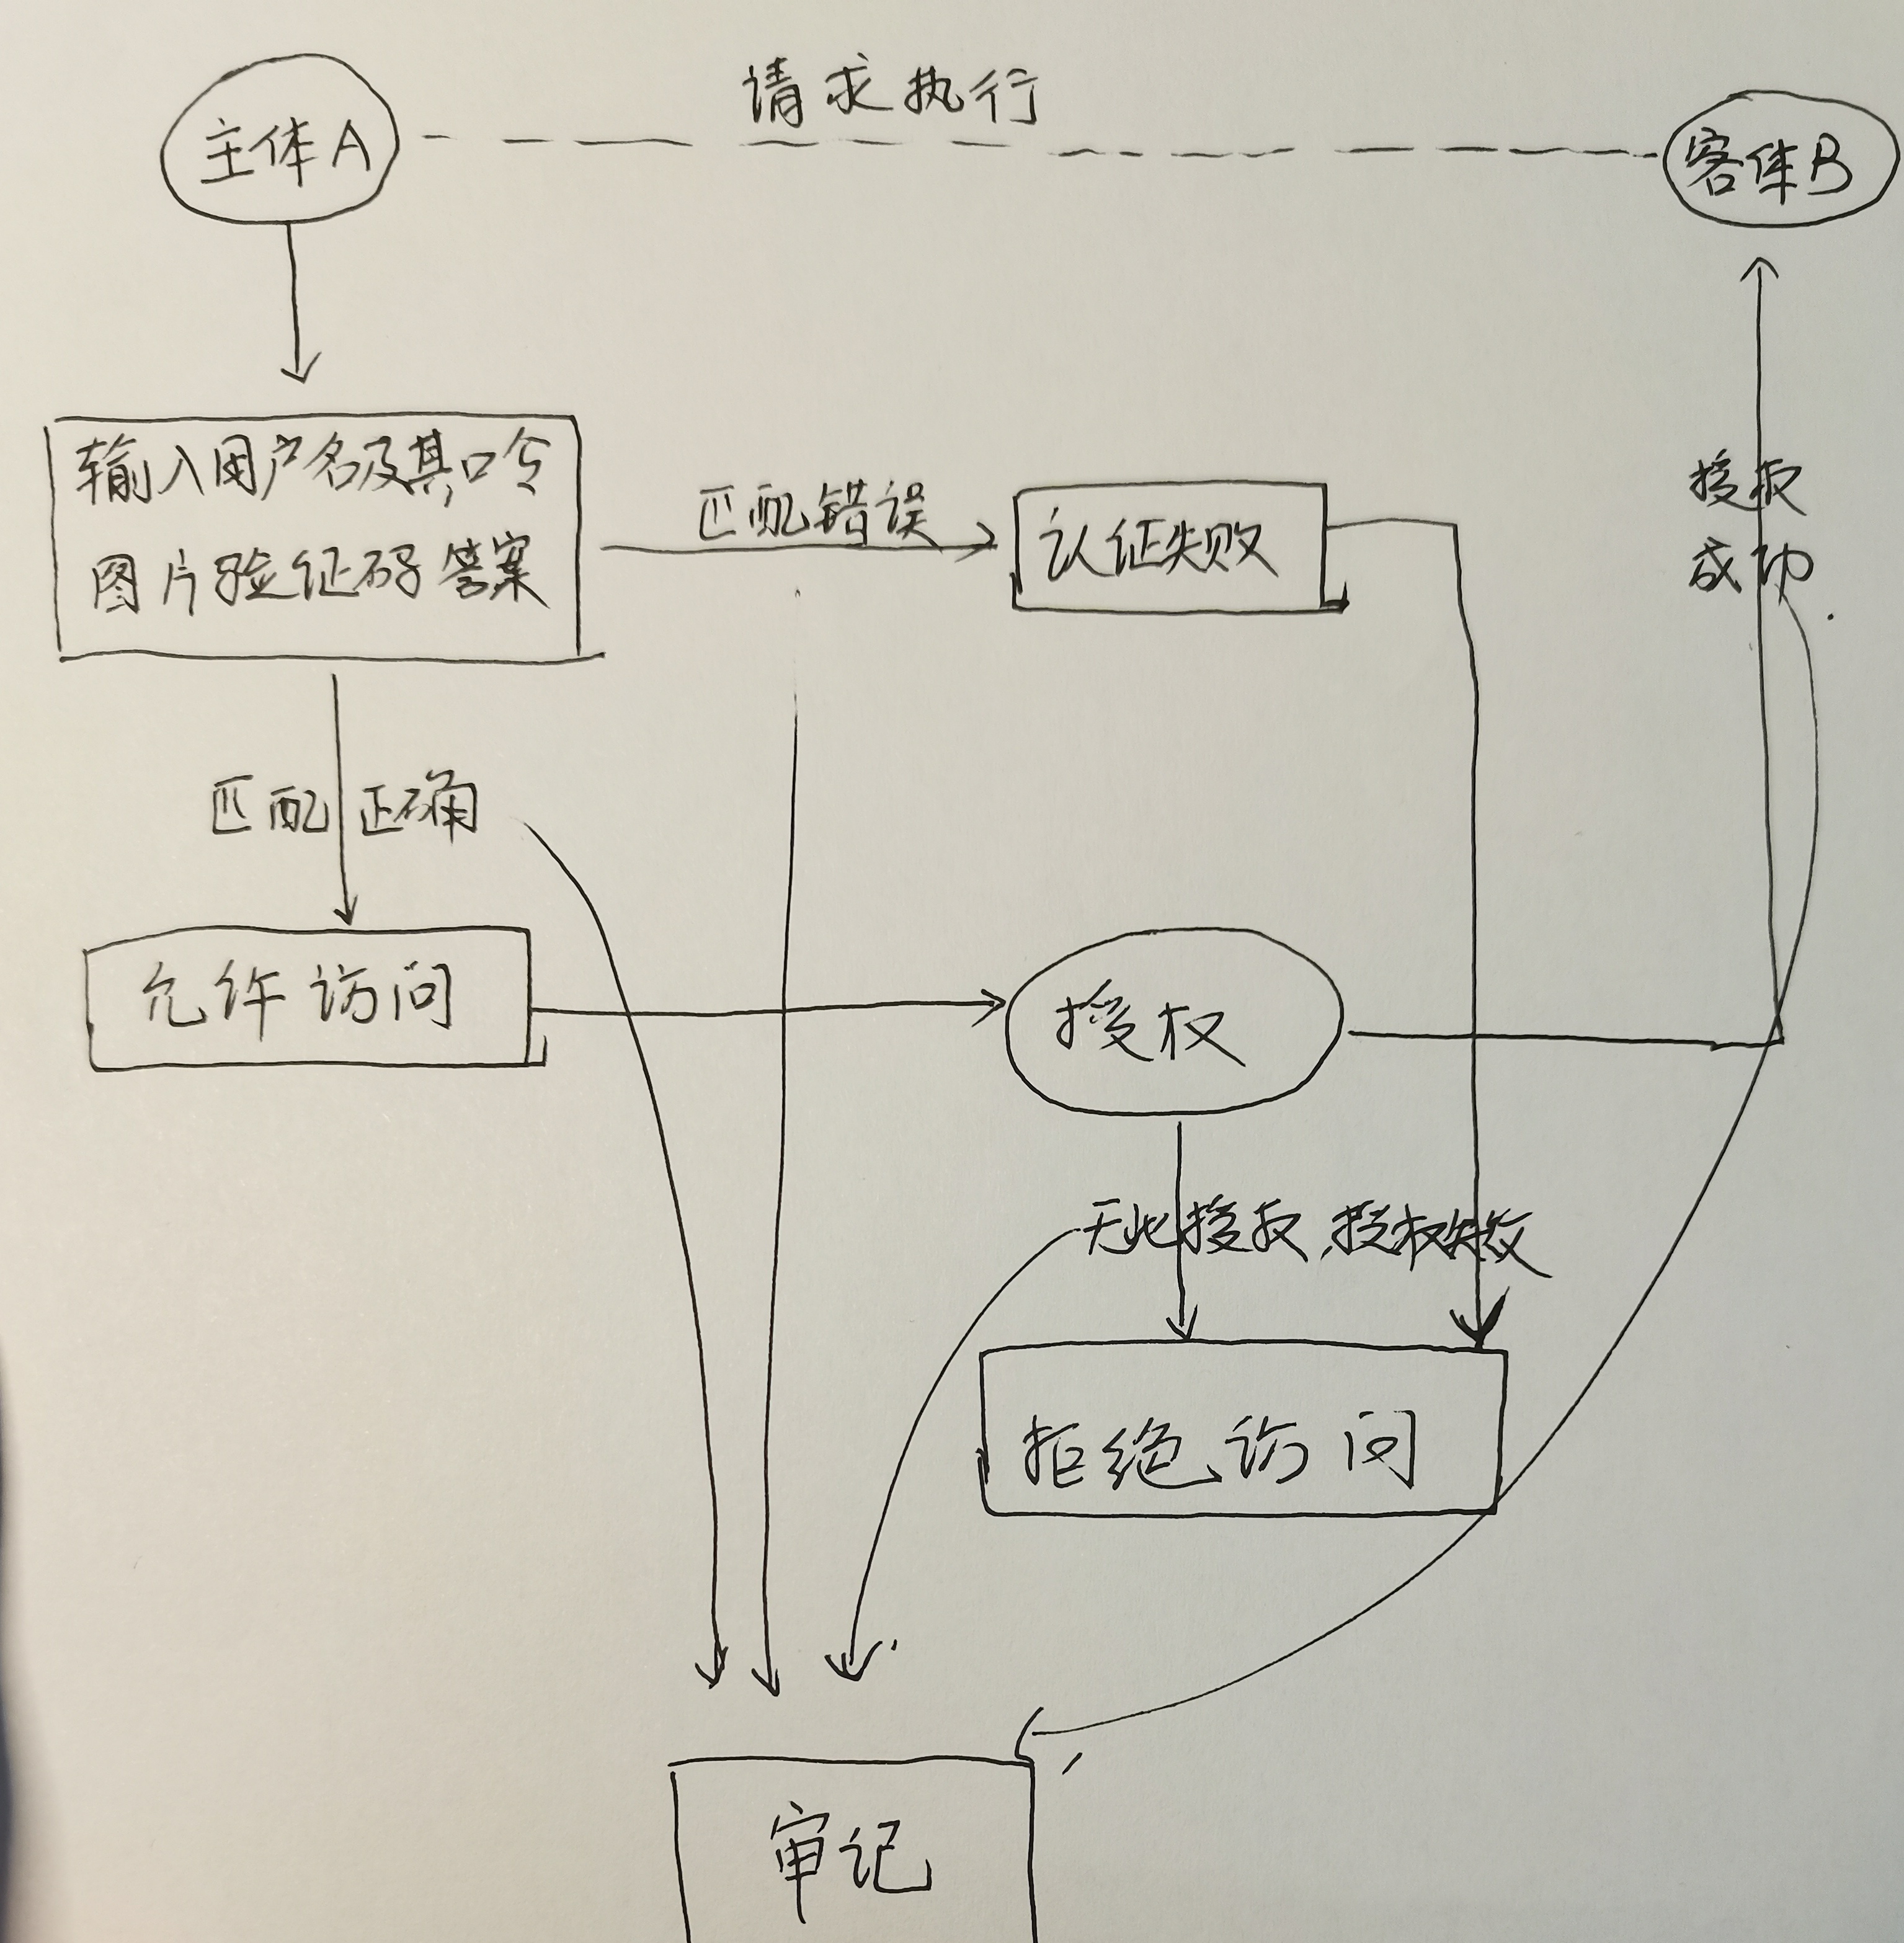 请求执行
主体A
客体B
输入用户名及其口令
图片验证码答案
匹配错误
认证失败
授权
成功
匹配正确
允许访问
授权
无此授权、授权失败
拒绝访问
审记